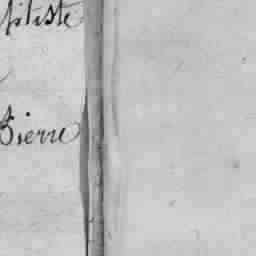 ptiste
Pierre